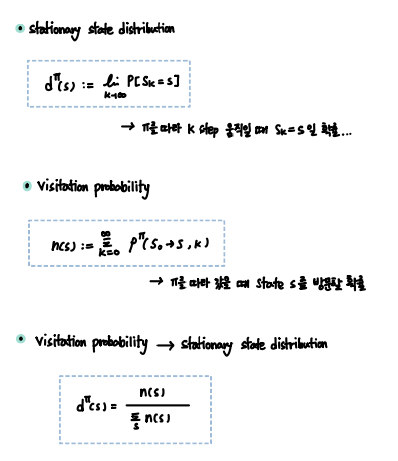 • Stationary state distribution
d^π(s) := lim_{k→∞} P[S_k = s]
→ π를 따라 k step 움직일 때 S_k = s 일 확률...
• Visitation probability
n(s) := Σ_{k=0}^{∞} ρ^π(S_0 → s, k)
→ π를 따라 갔을 때 State s를 방문할 확률
• Visitation probability → stationary state distribution
d^π(s) = n(s) / Σ_s n(s)